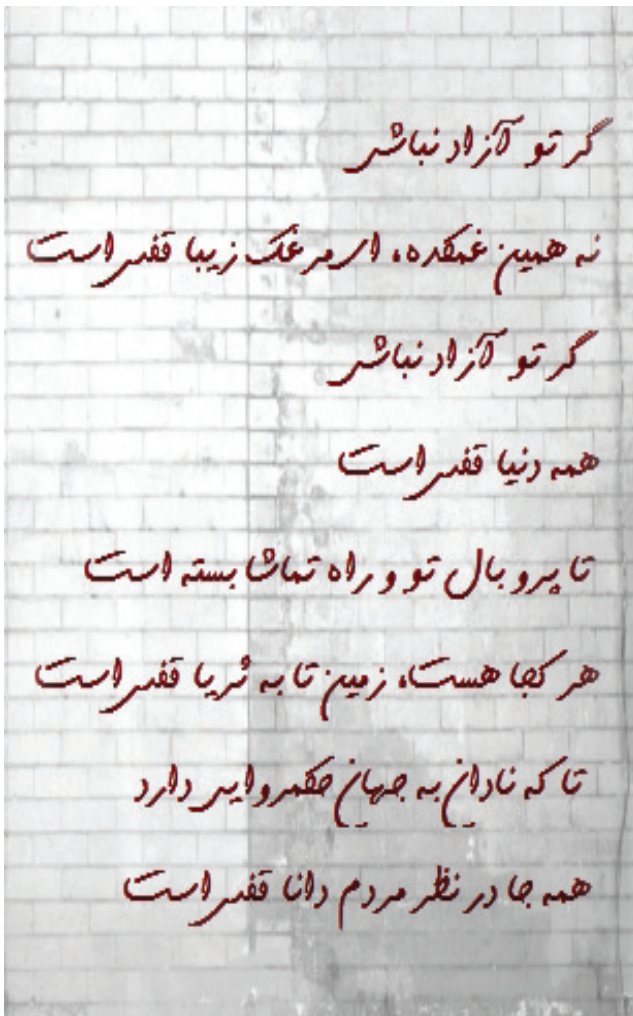 گر تو آزاد نباشی
نه همین غمکده، ای مرغک زیبا قفس است
گر تو آزاد نباشی
همه دنیا قفس است
تا پر و بال تو و راه تماشا بسته است
هر کجا هست، زمین تا به ثریا قفس است
تا که نادان به جهان حکمروایی دارد
همه جا در نظر مردم دانا قفس است